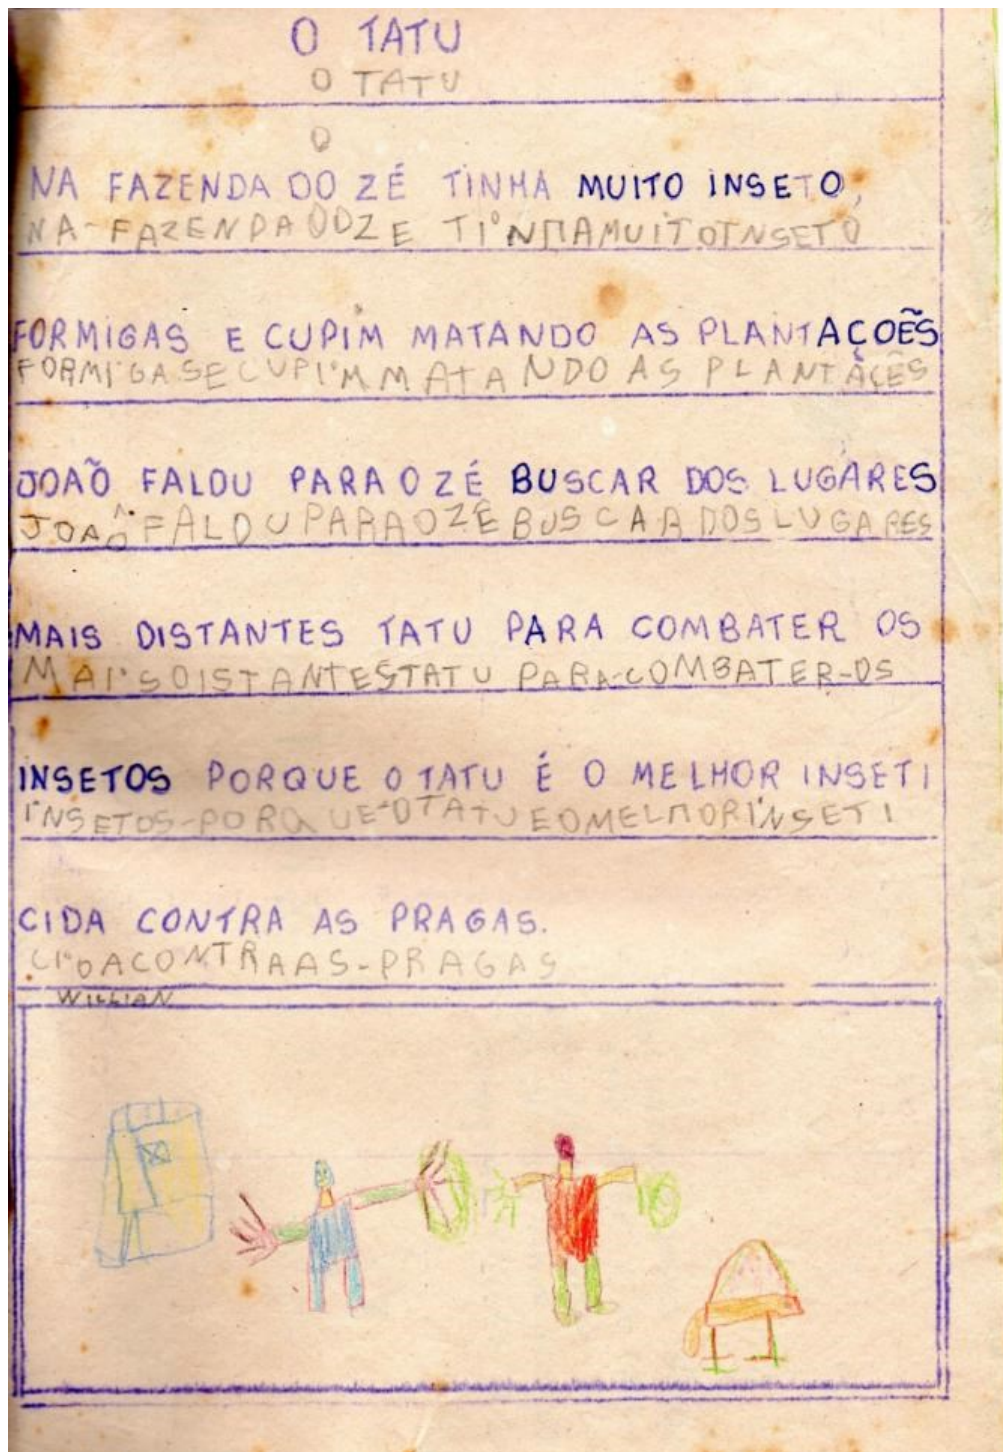 O TATU
O TATU
O
NA FAZENDA DO ZÉ TINHA MUITO INSETO,
NA-FAZENDA DOZE TINHAMUITOINSETO
FORMIGAS E CUPIM MATANDO AS PLANTAÇOẼS
FORMIGASECUPIMMATANDO AS PLANTAÇÊS
JOAÕ FALOU PARA O ZÉ BUSCAR DOS LUGARES
JOAÔ FALOUPARAOZÊBUSCARDOSLUGARES
MAIS DISTANTES TATU PARA COMBATER OS
MAISDISTANTESTATU PARA-COMBATER-OS
INSETOS PORQUE O TATU É O MELHOR INSETI
INSETOS-PORQUE-OTATUEOMELHORINSETI
CIDA CONTRA AS PRAGAS.
CIDACONTRAAS-PRAGAS
WILLIAN